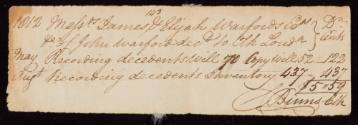 1812 Messrs James & Elijah Warford Exrs Dr
of John Warford decd To Clk Loudn Cents
May Recording decedents Will 70 Copy Will 52 — 122
Augt Recording decedents Inventory 437 — 437
$5.59
Binns Clk